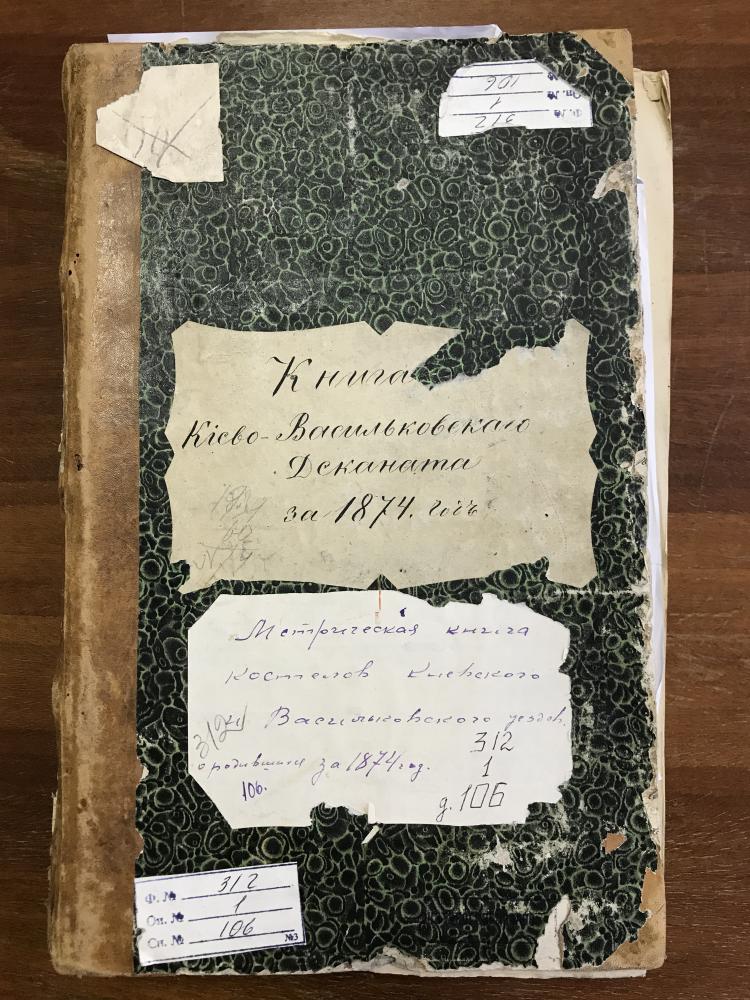 Ф. № 312
Оп. № 1
№ 106
Книга
Кіево-Васильковскаго
Деканата
за 1874. годъ
Метрическая книга
костелов Киевского
Васильковского уездов
о родившихся за 1874 год.
312
1
106.
д. 106
Ф. № 312
Оп. № 1
Сп. № 106 №3